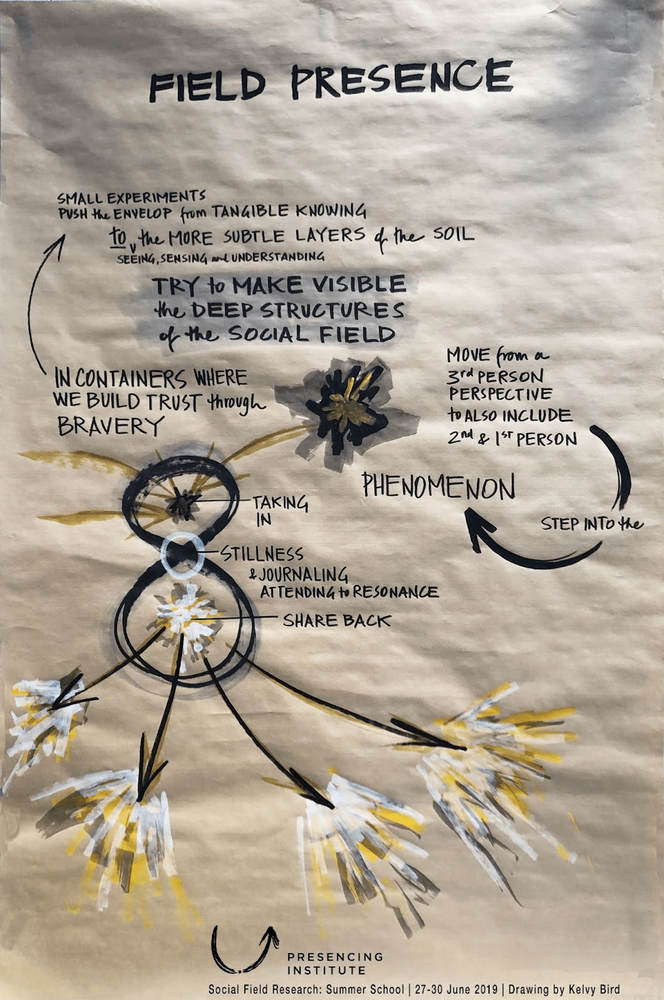 FIELD PRESENCE
SMALL EXPERIMENTS
PUSH the ENVELOP from TANGIBLE KNOWING
to the MORE SUBTLE LAYERS of the SOIL
SEEING, SENSING and UNDERSTANDING
TRY to MAKE VISIBLE
the DEEP STRUCTURES
of the SOCIAL FIELD
IN CONTAINERS WHERE
WE BUILD TRUST through
BRAVERY
MOVE from a
3rd PERSON
PERSPECTIVE
to ALSO INCLUDE
2nd & 1st PERSON
STEP INTO the
PHENOMENON
TAKING
IN
STILLNESS
& JOURNALING
ATTENDING to RESONANCE
SHARE BACK
PRESENCING
INSTITUTE
Social Field Research: Summer School | 27-30 June 2019 | Drawing by Kelvy Bird